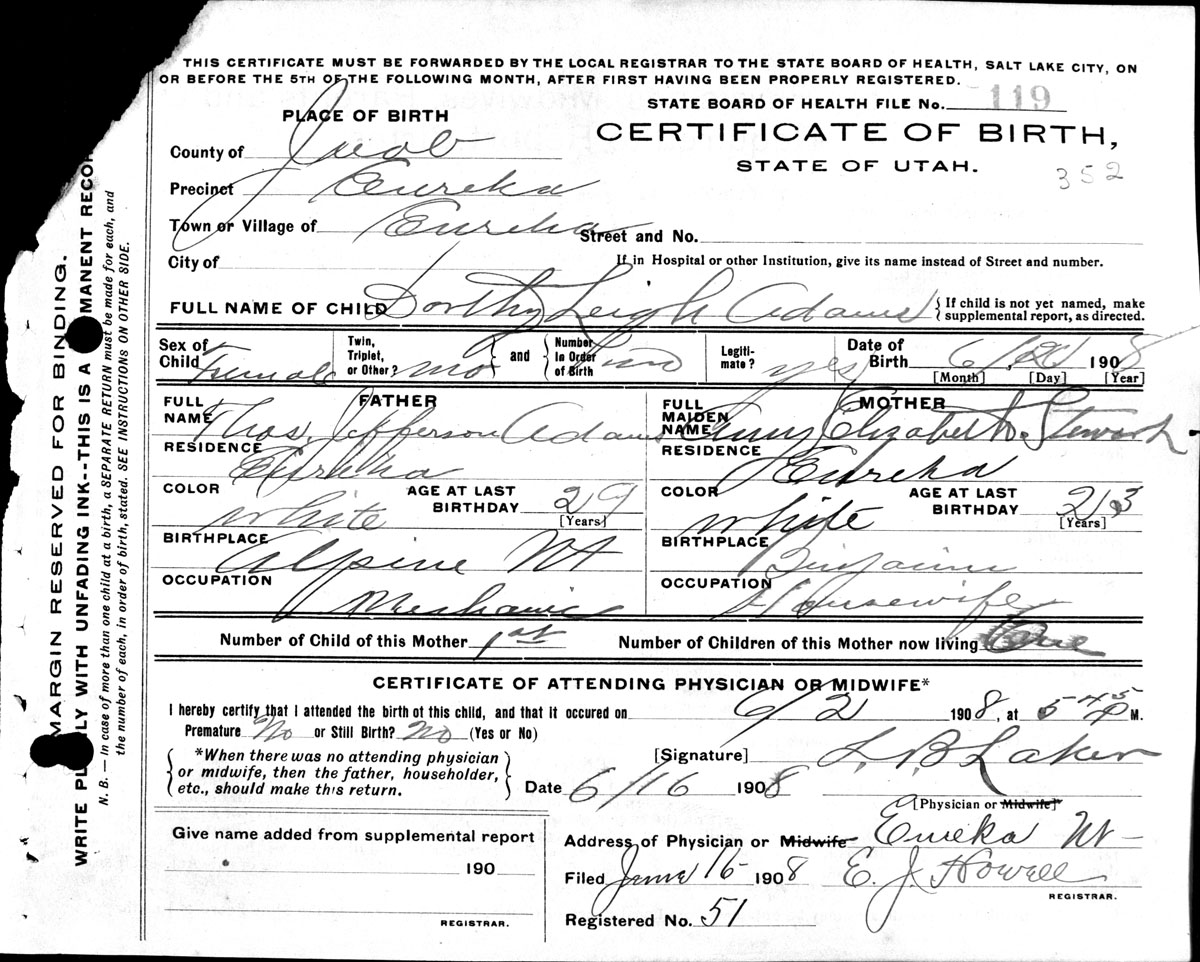 THIS CERTIFICATE MUST BE FORWARDED BY THE LOCAL REGISTRAR TO THE STATE BOARD OF HEALTH, SALT LAKE CITY, ON
OR BEFORE THE 5TH OF THE FOLLOWING MONTH, AFTER FIRST HAVING BEEN PROPERLY REGISTERED.
STATE BOARD OF HEALTH FILE No. 119
CERTIFICATE OF BIRTH,
STATE OF UTAH.
352
PLACE OF BIRTH
County of Juab
Precinct Eureka
Town or Village of Eureka
Street and No.
City of
If in Hospital or other Institution, give its name instead of Street and number.
FULL NAME OF CHILD Dorthy Leigh Adams
{If child is not yet named, make
supplemental report, as directed.
Sex of Child Female
Twin, Triplet, or Other? no and Number In Order of Birth
Legitimate? yes
Date of Birth 6 2 1908
[Month] [Day] [Year]
FATHER
FULL NAME Thos. Jefferson Adams
RESIDENCE Eureka
COLOR white
AGE AT LAST BIRTHDAY 29
[Years]
BIRTHPLACE Alpine Ut
OCCUPATION Mechanic
MOTHER
FULL MAIDEN NAME Amy Elizabeth Stewart.
RESIDENCE Eureka
COLOR white
AGE AT LAST BIRTHDAY 23
[Years]
BIRTHPLACE Benjamin
OCCUPATION Housewife
Number of Child of this Mother 1st
Number of Children of this Mother now living One
CERTIFICATE OF ATTENDING PHYSICIAN OR MIDWIFE*
I hereby certify that I attended the birth of this child, and that it occured on 6/2 1908, at 5 45 P M.
Premature No or Still Birth? No (Yes or No)
*When there was no attending physician
or midwife, then the father, householder,
etc., should make this return.
[Signature] L. B. Laker
[Physician or Midwife]*
Date 6/16 1908
Address of Physician or Midwife Eureka Ut
Filed June 16 1908 E. J. Howell
REGISTRAR.
Registered No. 51
Give name added from supplemental report
190
REGISTRAR.
MARGIN RESERVED FOR BINDING.
WRITE PL LY WITH UNFADING INK--THIS IS A MANENT RECOR
N. B. — In case of more than one child at a birth, a SEPARATE RETURN must be made for each, and
the number of each, in order of birth, stated. SEE INSTRUCTIONS ON OTHER SIDE.